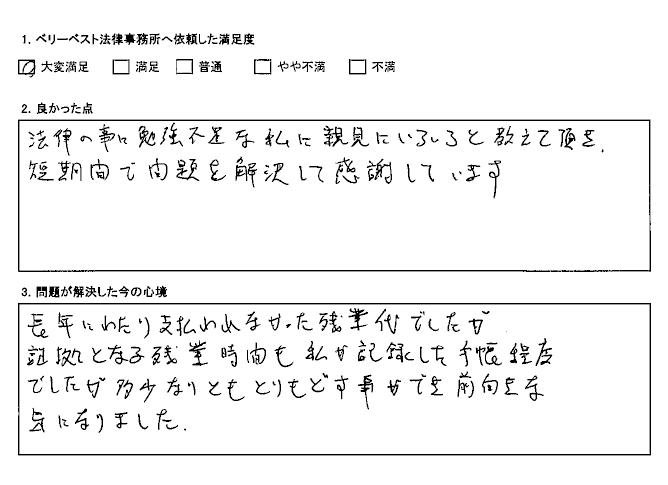 1. ベリーベスト法律事務所へ依頼した満足度
大変満足 満足 普通 やや不満 不満
2. 良かった点
法律の事に勉強不足な私に親見にいろいろと教えて頂き、
短期間で問題を解決して感謝しています
3. 問題が解決した今の心境
長年にわたり支払われなかった残業代でしたが
証拠となる残業時間も私が記録した手帳程度
でしたが多少なりともとりもどす事ができ前向きな
気になりました.